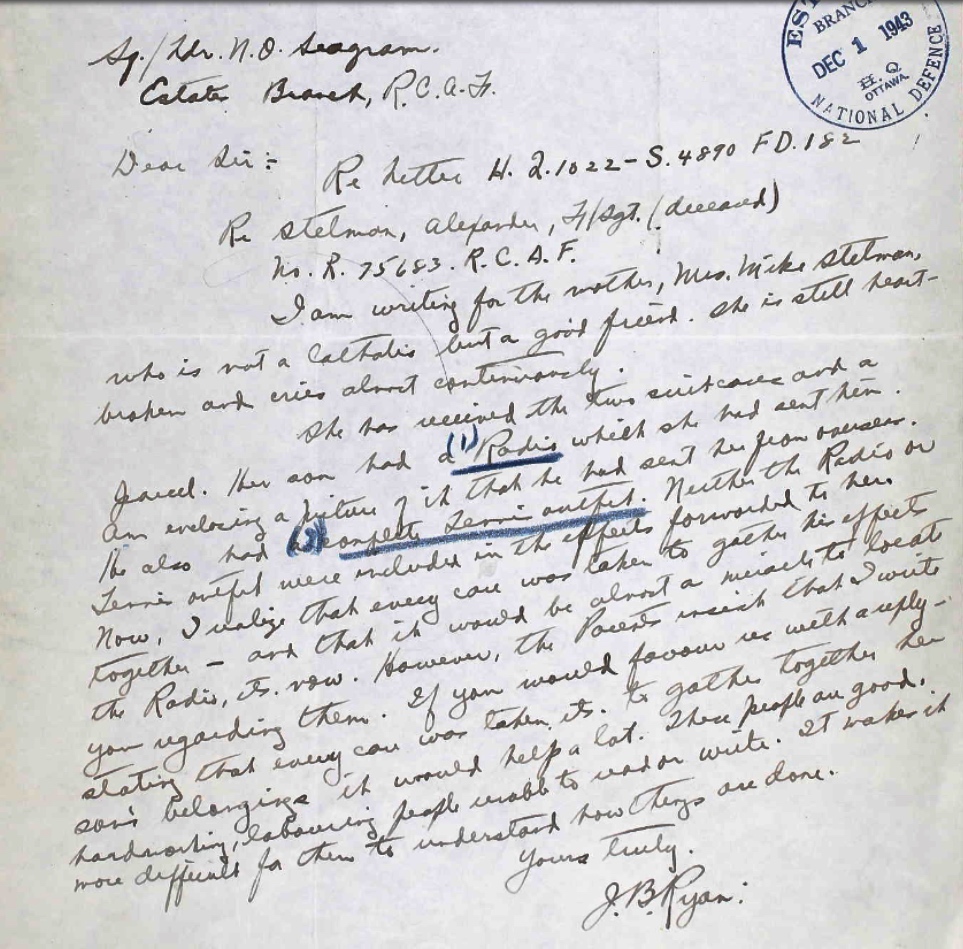 Sq./Ldr. N.O. Seagram.
Estates Branch, R.C.A.F.
EST
BRANC
DEC 1 1943
H.Q.
OTTAWA
NATIONAL DEFENCE
Dear Sir:-
Re Letter H.Q.1022-S.4890 FD.182
Re Stelman, Alexander, F/Sgt. (deceased)
No. R. 75683. R.C.A.F.
I am writing for the mother, Mrs. Mike Stelman,
who is not a Catholic but a good friend. She is still heart-
broken and cries almost continuously.
She has received the two suitcases and a
parcel. Her son had a (1) Radio which she had sent him.
Am enclosing a picture of it that he had sent her from overseas.
He also had (2) a complete Tennis outfit. Neither the Radio or
Tennis outfit were included in the effects forwarded to her.
Now, I realize that every care was taken to gather his effects
together - and that it would be almost a miracle to locate
the Radio, etc. now. However, the Parents insist that I write
you regarding them. If you would favour us with a reply -
stating that every care was taken, etc. to gather together her
son's belongings it would help a lot. These people are good,
hardworking, labouring people unable to read or write. It makes it
more difficult for them to understand how things are done.
Yours truly.
J.B. Ryan.